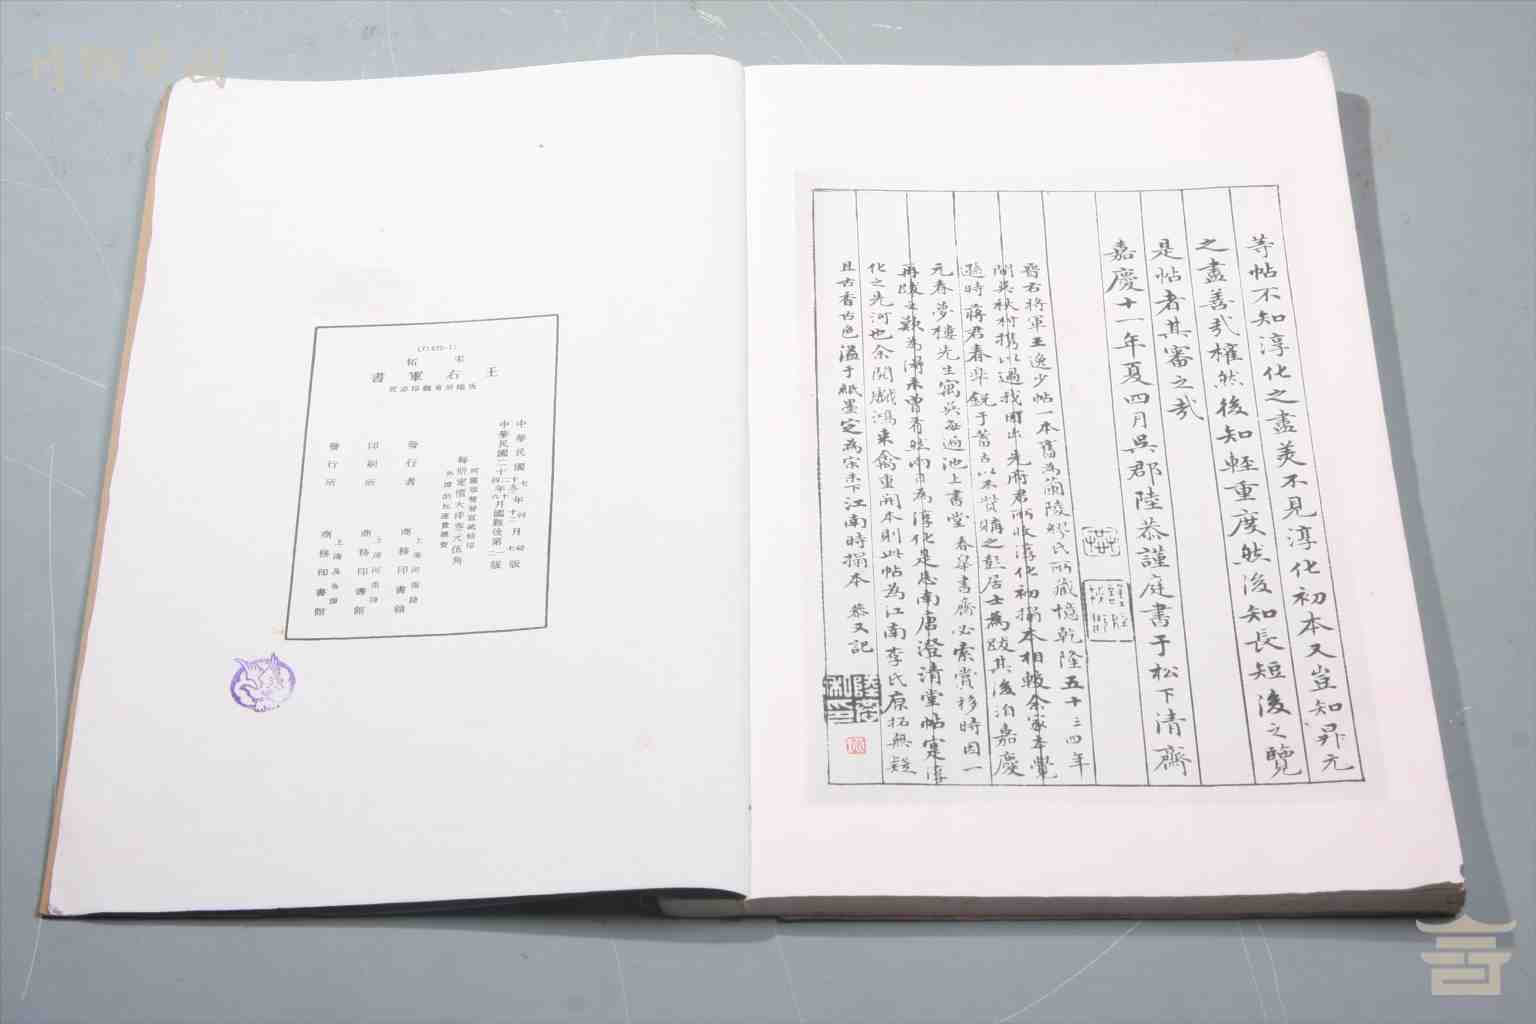 等帖不知淳化之盡美不見淳化初本又豈知昇元
之盡善哉權然後知輕重度然後知長短後之覽
是帖者其審之哉
嘉慶十一年夏四月吳郡陸恭謹庭書于松下清齋
晉右將軍王逸少帖一本舊為蘭陵繆氏所藏憶乾隆五十三四年
間吳秋村攜以過我因出先府君所收淳化初搨本相較余家本覺
遜時蔣君春皋銳于蓄古以重貲購之彭居士為跋其後洎嘉慶
元春夢樓先生寓吳每過池上書堂春皋書齋必索賞移時因一
再跋之歎為得未曾有然而目為淳化是忘南唐澄清堂帖寔淳
化之先河也余閱戲鴻來禽重開本則此帖為江南李氏原拓無疑
且古香古色溢于紙墨定為宋未下江南時搨本 恭又記
宋拓
王右軍書
中華民國七年四月初版
發行者 商務印書館
印刷所 上海河南路 商務印書館
發行所 上海及各埠 商務印書館